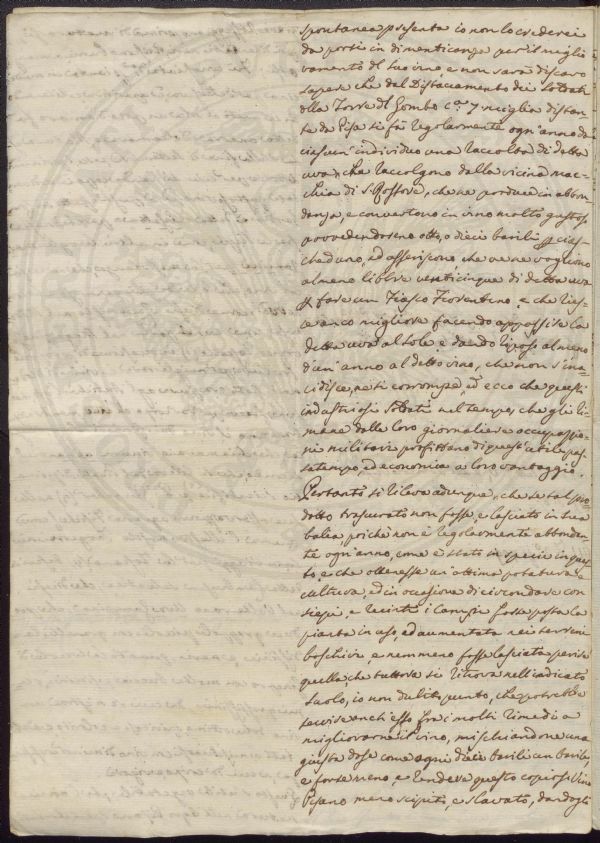 spontanea presenta io non lo crederei
da porsi in dimenticanza per il miglio
ramento del suo vino e non sarà discaro
sapere che dal Distaccamento dei Soldati
della Torre del Gombo c.a 7 miglia distan-
te da Pisa si fà regolarmente ogni anno da
ciascun' individuo una raccolta di detta
uva, che raccolgono dalla vicina mac-
chia di S. Rossore, che ne produce in abbon
danza, e convertono in vino molto gustoso
provvedendosene otto, o dieci barili p cias-
cheduno, ed asseriscono che ve ne vogliono
almeno libbre venticinque di detta uva
p fare un Fiasco Fiorentino, e che ries-
ce anco migliore facendo appassire la
detta uva al Sole, e dando riposo almeno
d'un' anno al detto vino, che non s'ina-
cidisce, ne si corrompe, ed ecco che questi
industriosi Soldati nel tempo, che gli ri-
mane dalle loro giornaliere occupazio-
ni militari profittano di quest' utile pas-
satempo, ed economica a loro vantaggio.
Pertanto si rileva adunque, che se tal pro
dotto trascurato non fosse, e lasciato in sua
balea, poiché non è regolarmente abbondan
te ogni anno, come è stato in specie in ques
to, e che ottenesse un' ottima potatura e
cultura, ed in occasione di circondare con
siepi, e recinti i Campi fosse posta la
pianta in uso, ed aumentata nei terreni
boschivi, e nemmeno fosse lasciata perire
quella, che tuttora si ritrova nell'indicato
Suolo, io non dubito punto, che potrebbe
servire anch' esso fra i molti rimedi a
migliorarne il vino, mischiandone una
giusta dose come ogni dieci barili un barile,
e forse meno, e rendere questo copioso Vino
Pisano meno scipito, e slavato, dandogli